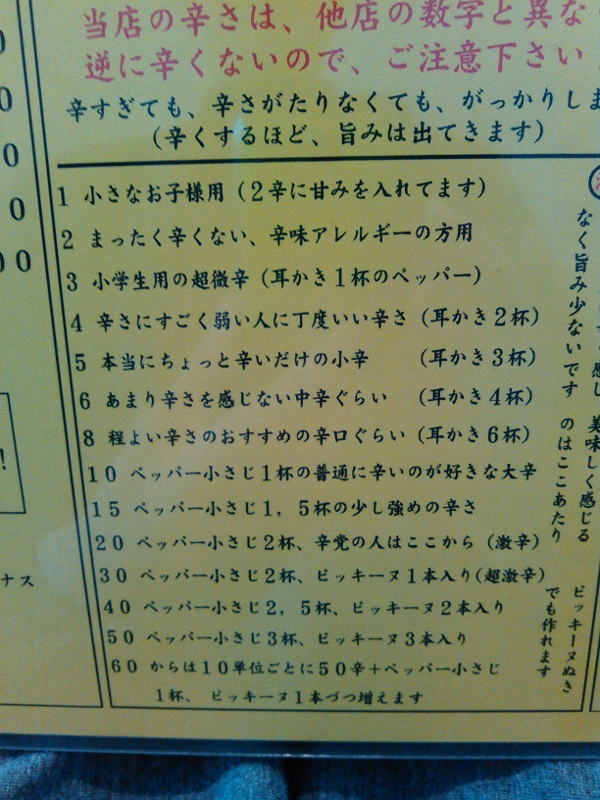 当店の辛さは、他店の数字と異な
逆に辛くないので、ご注意下さい
辛すぎても、辛さがたりなくても、がっかりしま
(辛くするほど、旨みは出てきます)
1 小さなお子様用(2辛に甘みを入れてます)
2 まったく辛くない、辛味アレルギーの方用
3 小学生用の超微辛(耳かき1杯のペッパー)
4 辛さにすごく弱い人に丁度いい辛さ(耳かき2杯)
5 本当にちょっと辛いだけの小辛 (耳かき3杯)
6 あまり辛さを感じない中辛ぐらい (耳かき4杯)
8 程よい辛さのおすすめの辛口ぐらい(耳かき6杯)
10 ペッパー小さじ1杯の普通に辛いのが好きな大辛
15 ペッパー小さじ1,5杯の少し強めの辛さ
20 ペッパー小さじ2杯、辛党の人はここから(激辛)
30 ペッパー小さじ2杯、ピッキーヌ1本入り(超激辛)
40 ペッパー小さじ2,5杯、ピッキーヌ2本入り
50 ペッパー小さじ3杯、ピッキーヌ3本入り
60 からは10単位ごとに50辛+ペッパー小さじ
1杯、 ピッキーヌ1本づつ増えます
感じ
なく旨み少ないです
美味しく感じる
のはここあたり
ピッキーヌぬき
でも作れます
0
0
0
0
00
!
ナス